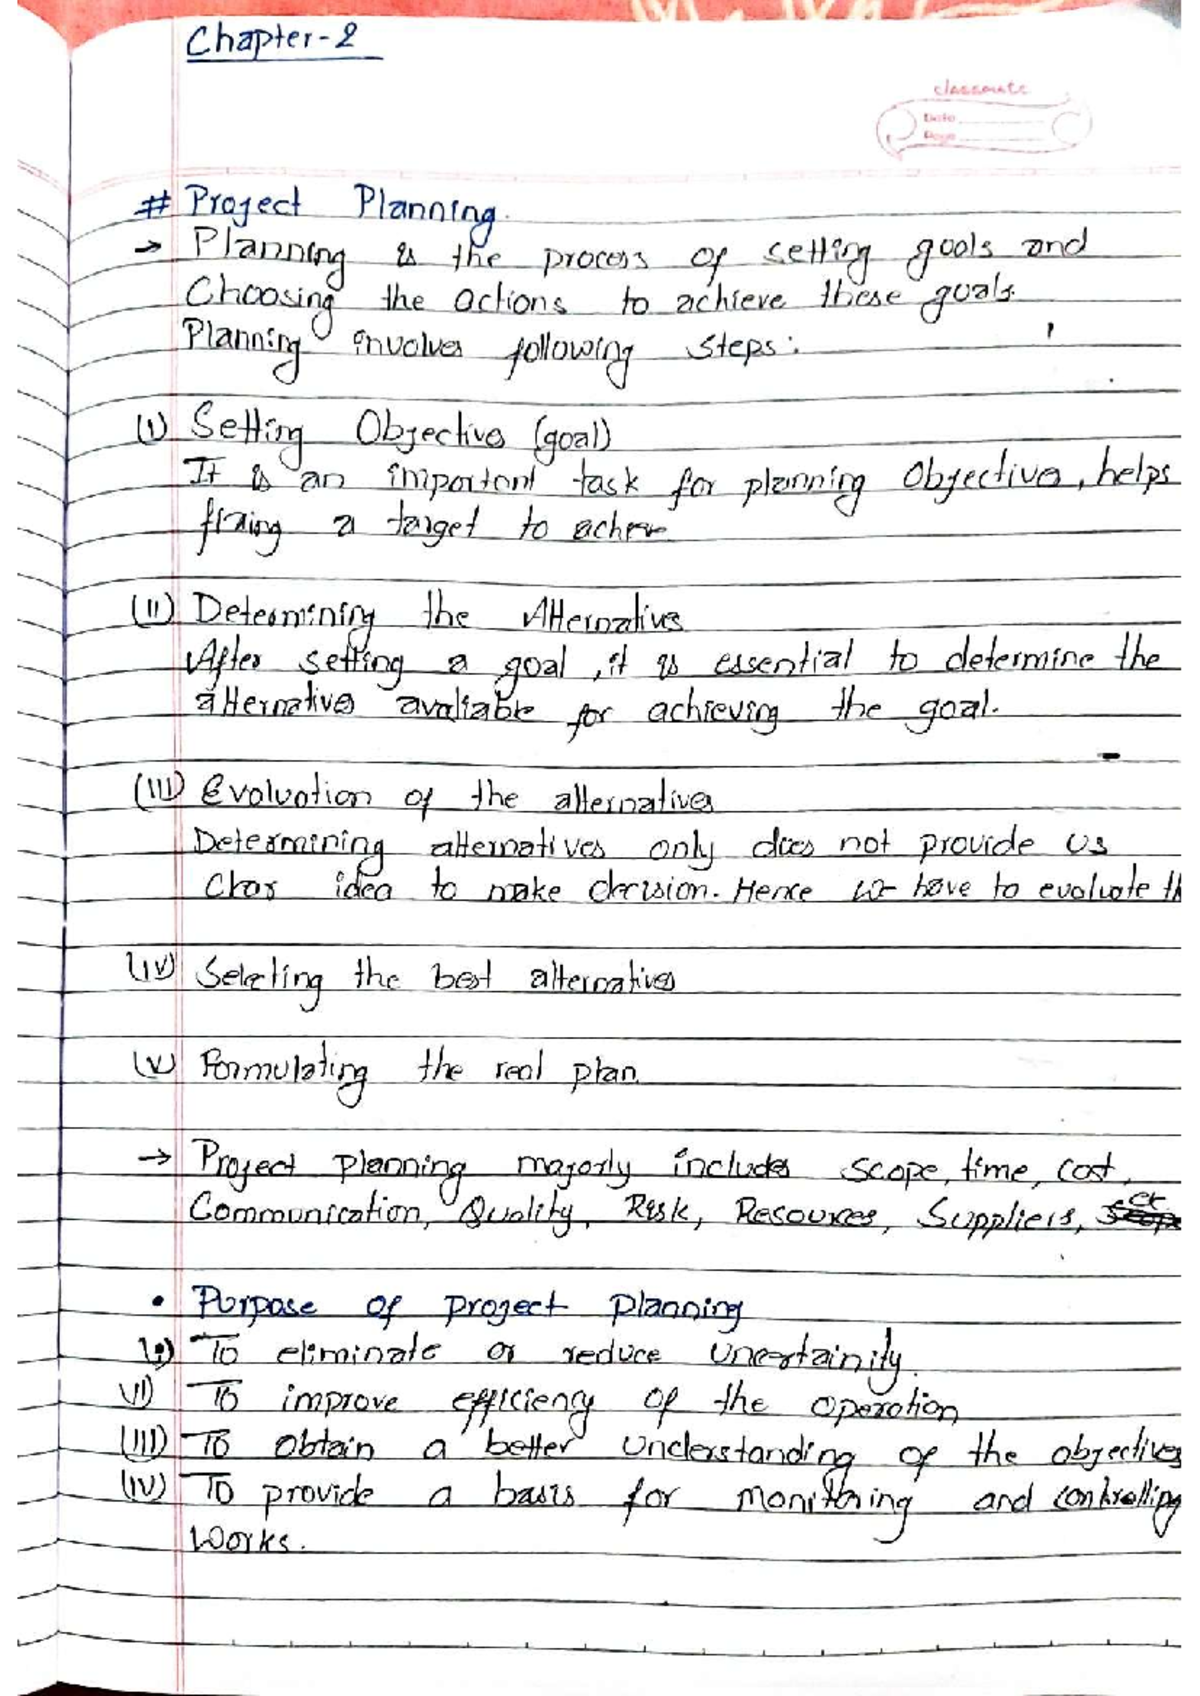 Chapter-2
classmate
Date
Page
# Project Planning.
→ Planning is the process of setting goals and
Choosing the actions to achieve these goals.
Planning involves following steps:
(i) Setting Objective (goal)
It is an important task for planning Objectives, helps
fixing a target to achieve
(ii) Determining the Alternatives
After setting a goal, it is essential to determine the
alternatives available for achieving the goal.
(iii) Evaluation of the alternatives
Determining alternatives only does not provide us
Clear idea to make decision. Hence we have to evaluate th
(iv) Selecting the best alternatives
(v) Formulating the real plan.
→ Project planning majorly includes scope, time, cost,
Communication, Quality, Risk, Resources, Suppliers, et
• Purpose of project planning
(i) To eliminate or reduce uncertainity.
(ii) To improve efficiency of the operation
(iii) To obtain a better understanding of the objectives
(iv) To provide a basis for monitoring and controlling
works.